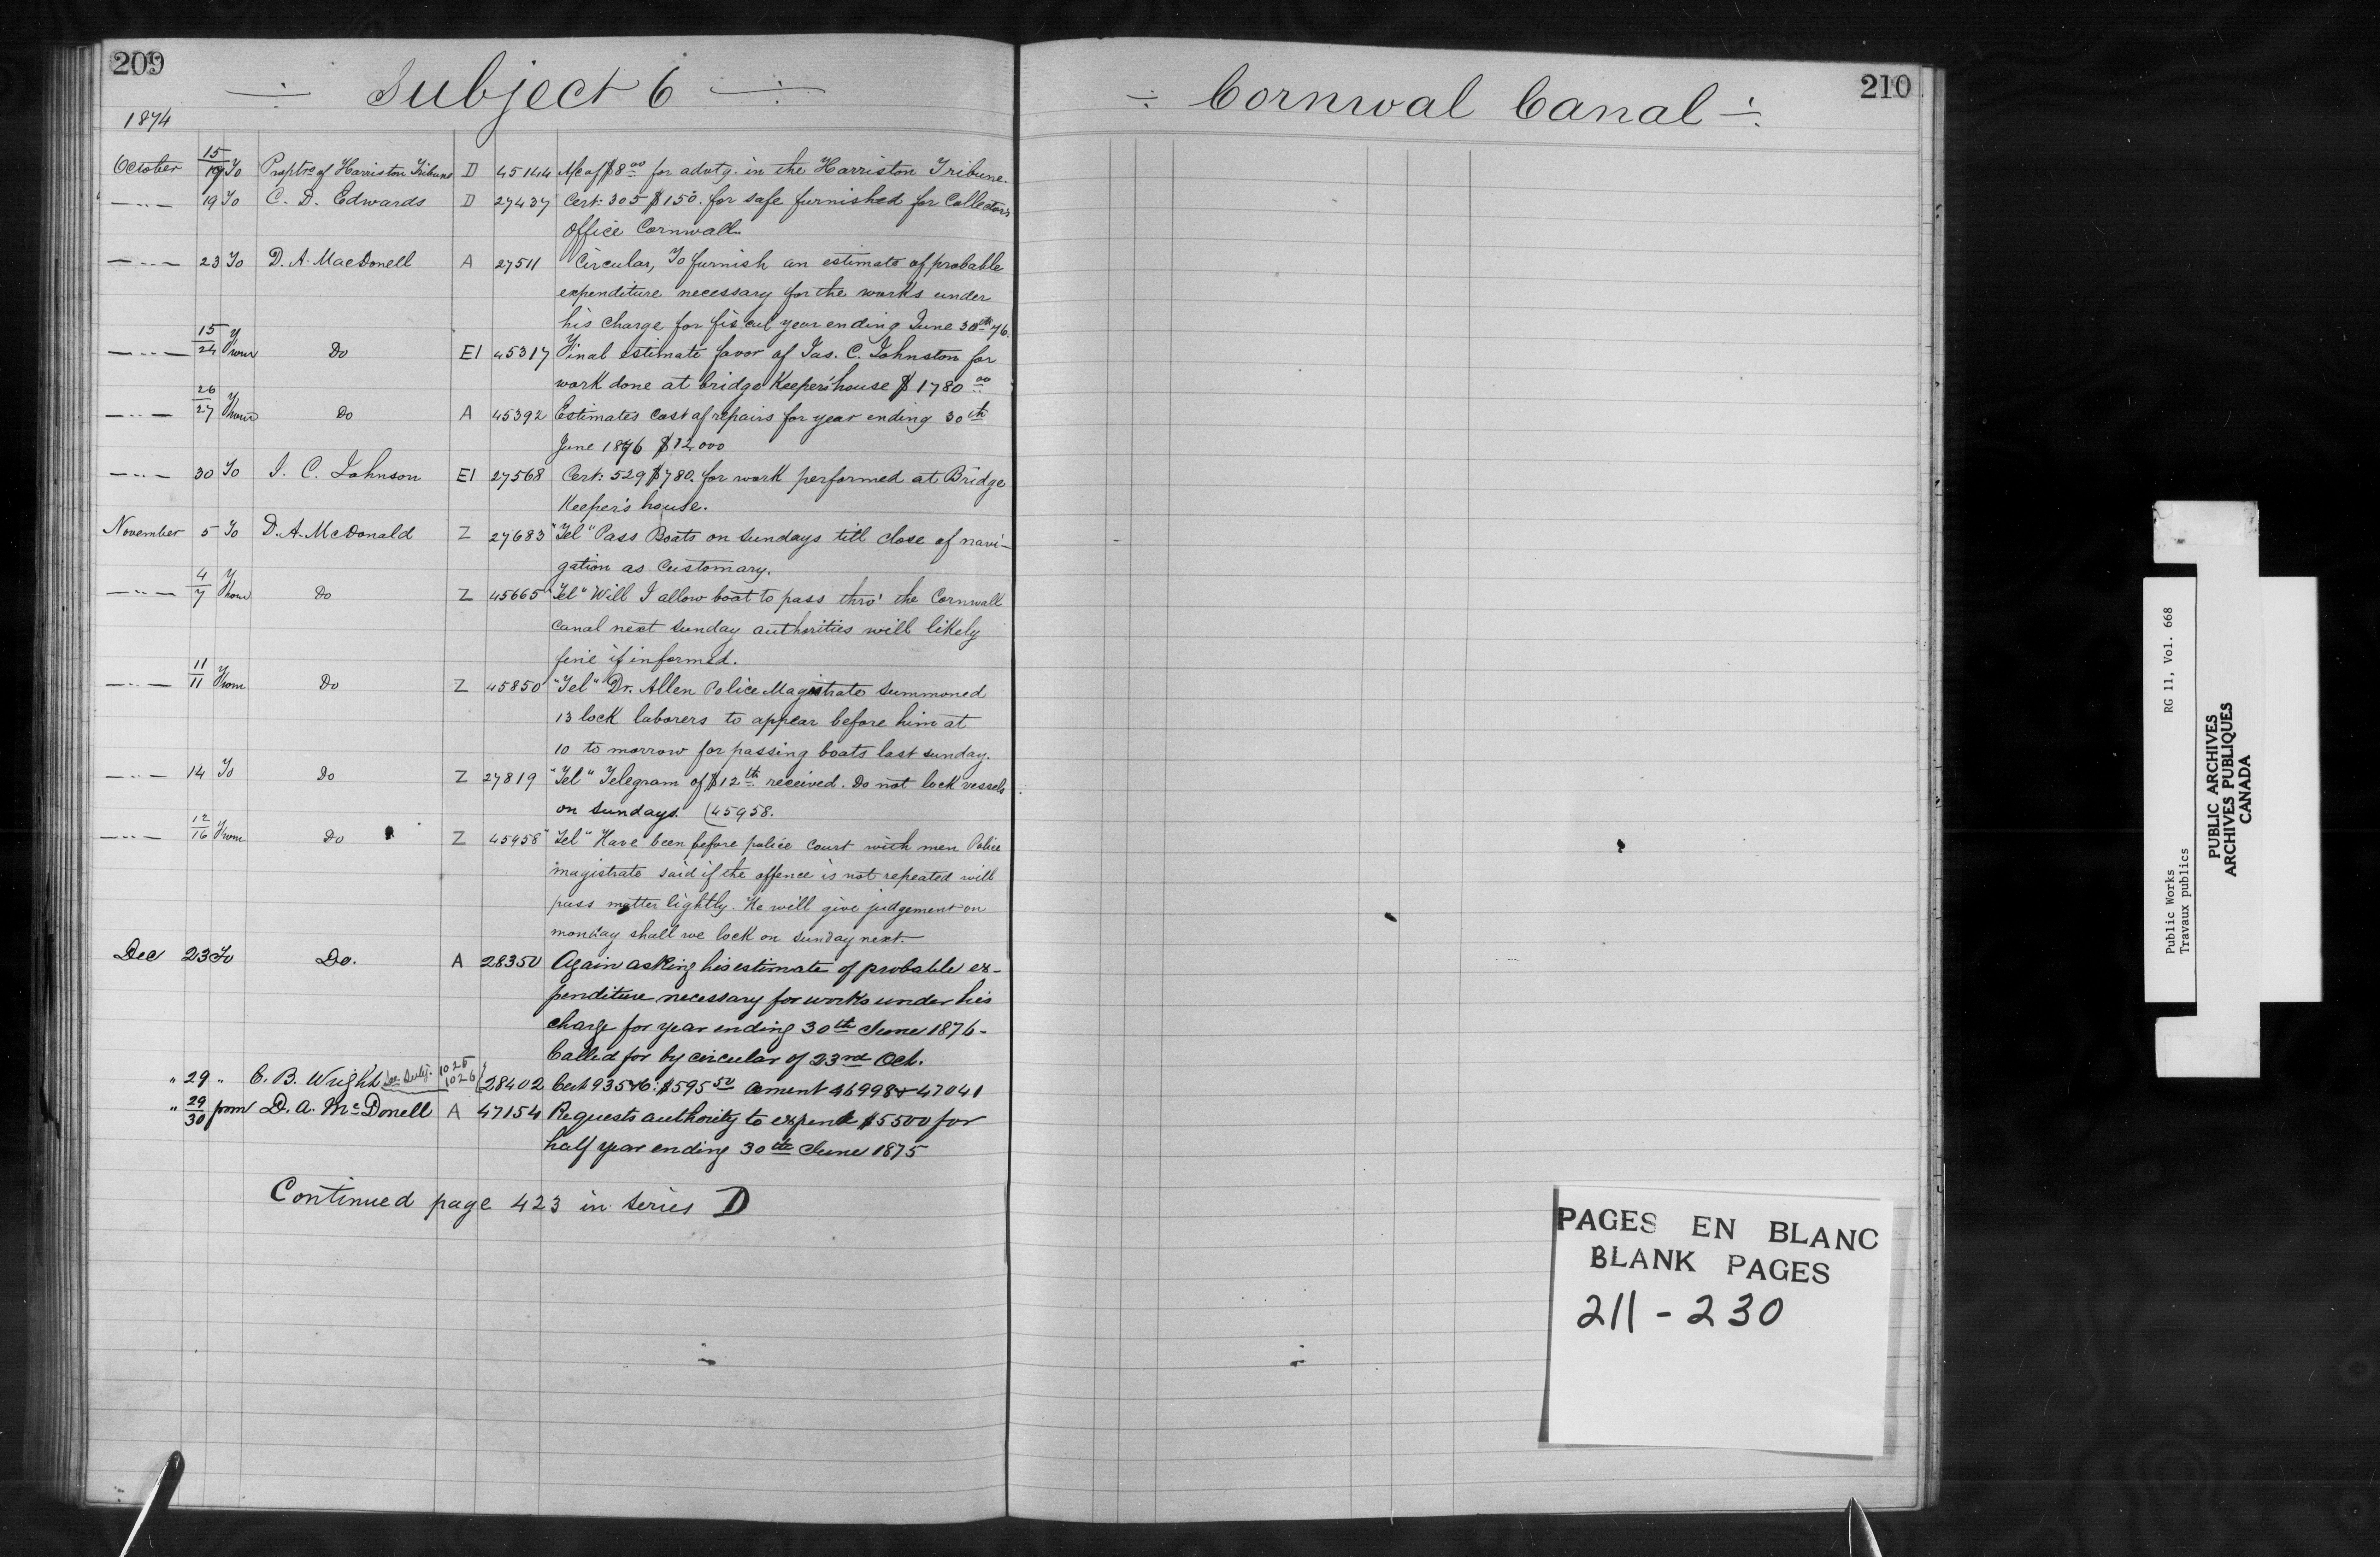 209
÷ Subject 6 ÷
1874
October 15/19 To Proptrs of Harriston Tribune D 45144 A/c of $8.00 for advtg. in the Harriston Tribune.
" 19 To C. D. Edwards D 27437 Cert: 305 $150. for safe furnished for Collectors
office Cornwall.
" 23 To D. A. MacDonell A 27511 Circular, To furnish an estimate of probable
expenditure necessary for the works under
his charge for fiscal year ending June 30th 76.
" 15/24 From Do E1 45317 Final estimate favor of Jas. C. Johnston for
work done at bridge Keeper's house $1780.00
" 26/27 From Do A 45392 Estimates cost of repairs for year ending 30th
June 1876 $12,000
" 30 To J. C. Johnson E1 27568 Cert: 529 $780. for work performed at Bridge
Keeper's house.
November 5 To D. A. McDonald Z 27683 "Tel" Pass Boats on Sundays till close of navi-
gation as Customary.
" 4/7 From Do Z 45665 "Tel" Will I allow boat to pass thro' the Cornwall
Canal next Sunday authorities will likely
fine if informed.
" 11/11 From Do Z 45850 "Tel" Dr. Allen Police Magistrate Summoned
13 lock laborers to appear before him at
10 to morrow for passing boats last Sunday.
" 14 To Do Z 27819 "Tel" Telegram of $12th received. Do not lock vessels
on Sundays. (45958.
" 12/16 From Do Z 45958 "Tel" Have been before police Court with men Police
magistrate said if the offence is not repeated will
pass matter lightly. He will give judgement on
monday shall we lock on Sunday next.
Dec 23 To Do. A 28350 Again asking his estimate of probable ex-
penditure necessary for works under his
charge for year ending 30th June 1876-
Called for by circular of 23rd Oct.
" 29 " C. B. Wright See Subj. 1025 1026 28402 Cert 935+6: $595.50 Cement 46998 & 47041
" 29/30 from D. A. McDonell A 47154 Requests authority to expend $5500 for
half year ending 30th June 1875
Continued page 423 in Series D
210
÷ Cornwal Canal ÷
PAGES EN BLANC
BLANK PAGES
211 - 230
Public Works RG 11, Vol. 668
Travaux publics
PUBLIC ARCHIVES
ARCHIVES PUBLIQUES
CANADA